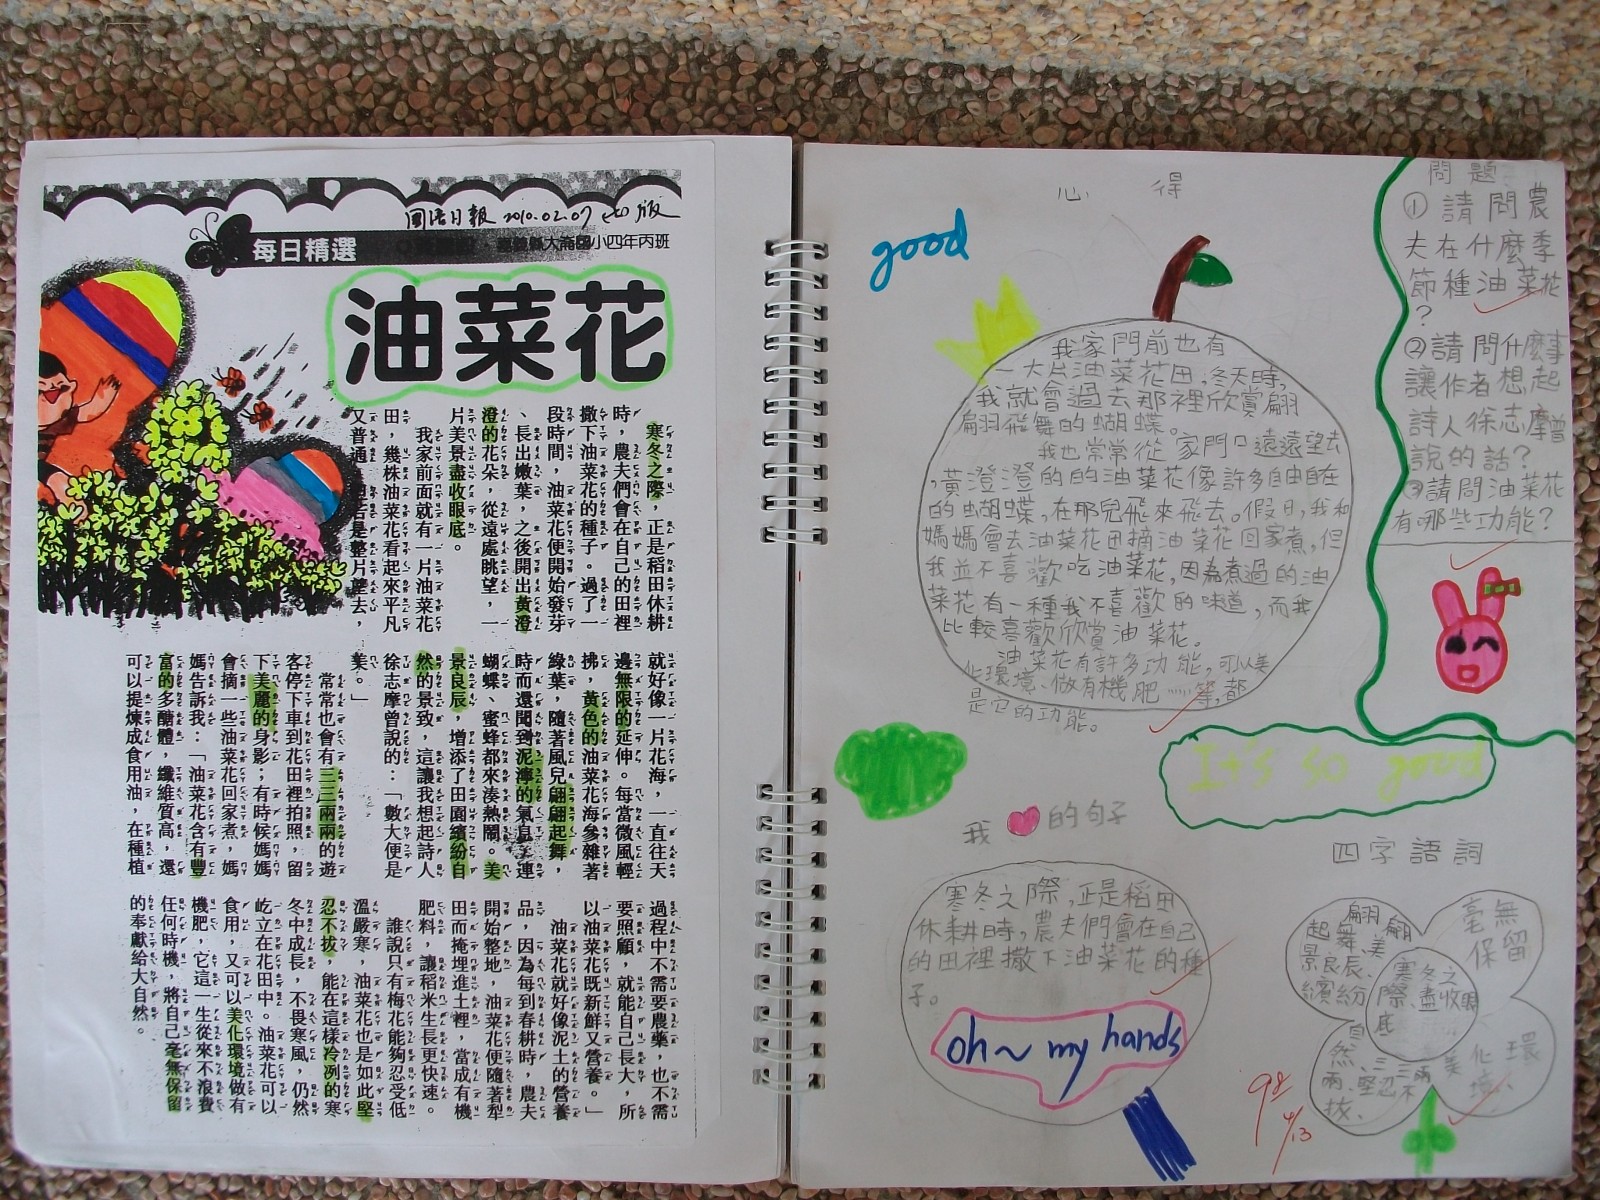 國語日報 2010.02.07 七版
每日精選
嘉義縣大崙國小四年丙班
油菜花
寒冬之際，正是稻田休耕
時，農夫們會在自己的田裡
撒下油菜花的種子。過了一
段時間，油菜花便開始發芽
、長出嫩葉，之後開出黃澄
澄的花朵，從遠處眺望，一
片美景盡收眼底。
我家前面就有一片油菜花
田，幾株油菜花看起來平凡
又普通，但若是整片望去，
就好像一片花海，一直往天
邊無限的延伸。每當微風輕
拂，黃色的油菜花海參雜著
綠葉，隨著風兒翩翩起舞，
時而還聞到泥濘的氣息，連
蝴蝶、蜜蜂都來湊熱鬧。美
景良辰，增添了田園繽紛自
然的景致，這讓我想起詩人
徐志摩曾說的：「數大便是
美。」
常常也會有三三兩兩的遊
客停下車到花田裡拍照，留
下美麗的身影；有時候媽媽
會摘一些油菜花回家煮，媽
媽告訴我：「油菜花含有豐
富的多醣體，纖維質高，還
可以提煉成食用油，在種植
過程中不需要農藥，也不需
要照顧，就能自己長大，所
以油菜花既新鮮又營養。」
油菜花就好像泥土的營養
品，因為每到春耕時，農夫
開始整地，油菜花便隨著犁
田而掩埋進土裡，當成有機
肥料，讓稻米生長更快速。
誰說只有梅花能夠忍受低
溫嚴寒，油菜花也是如此堅
忍不拔，能在這樣冷冽的寒
冬中成長，不畏寒風，仍然
屹立在花田中。油菜花可以
食用，又可以美化環境做有
機肥，它這一生從來不浪費
任何時機，將自己毫無保留
的奉獻給大自然。
心得
good
我家門前也有
一大片油菜花田，冬天時，
我就會過去那裡欣賞翩
翩飛舞的蝴蝶。
我也常常從家門口遠遠望去
，黃澄澄的的油菜花像許多自由自在
的蝴蝶，在那兒飛來飛去。假日，我和
媽媽會去油菜花田摘油菜花回家煮，但
我並不喜歡吃油菜花，因為煮過的油
菜花有一種我不喜歡的味道，而我
比較喜歡欣賞油菜花。
油菜花有許多功能，可以美
化環境、做有機肥……等，都
是它的功能。
問題
①請問農
夫在什麼季
節種油菜花
？
②請問什麼事
讓作者想起
詩人徐志摩曾
說的話？
③請問油菜花
有哪些功能？
It's so good
我 的句子
寒冬之際，正是稻田
休耕時，農夫們會在自己
的田裡撒下油菜花的種
子。
oh~ my hands
四字語詞
翩翩
起舞、美
景良辰、
繽紛
自
然、三三
兩兩、堅忍不
拔、
寒冬之
際、盡收眼
底
毫無
保留
美化環
境、
98
4/13